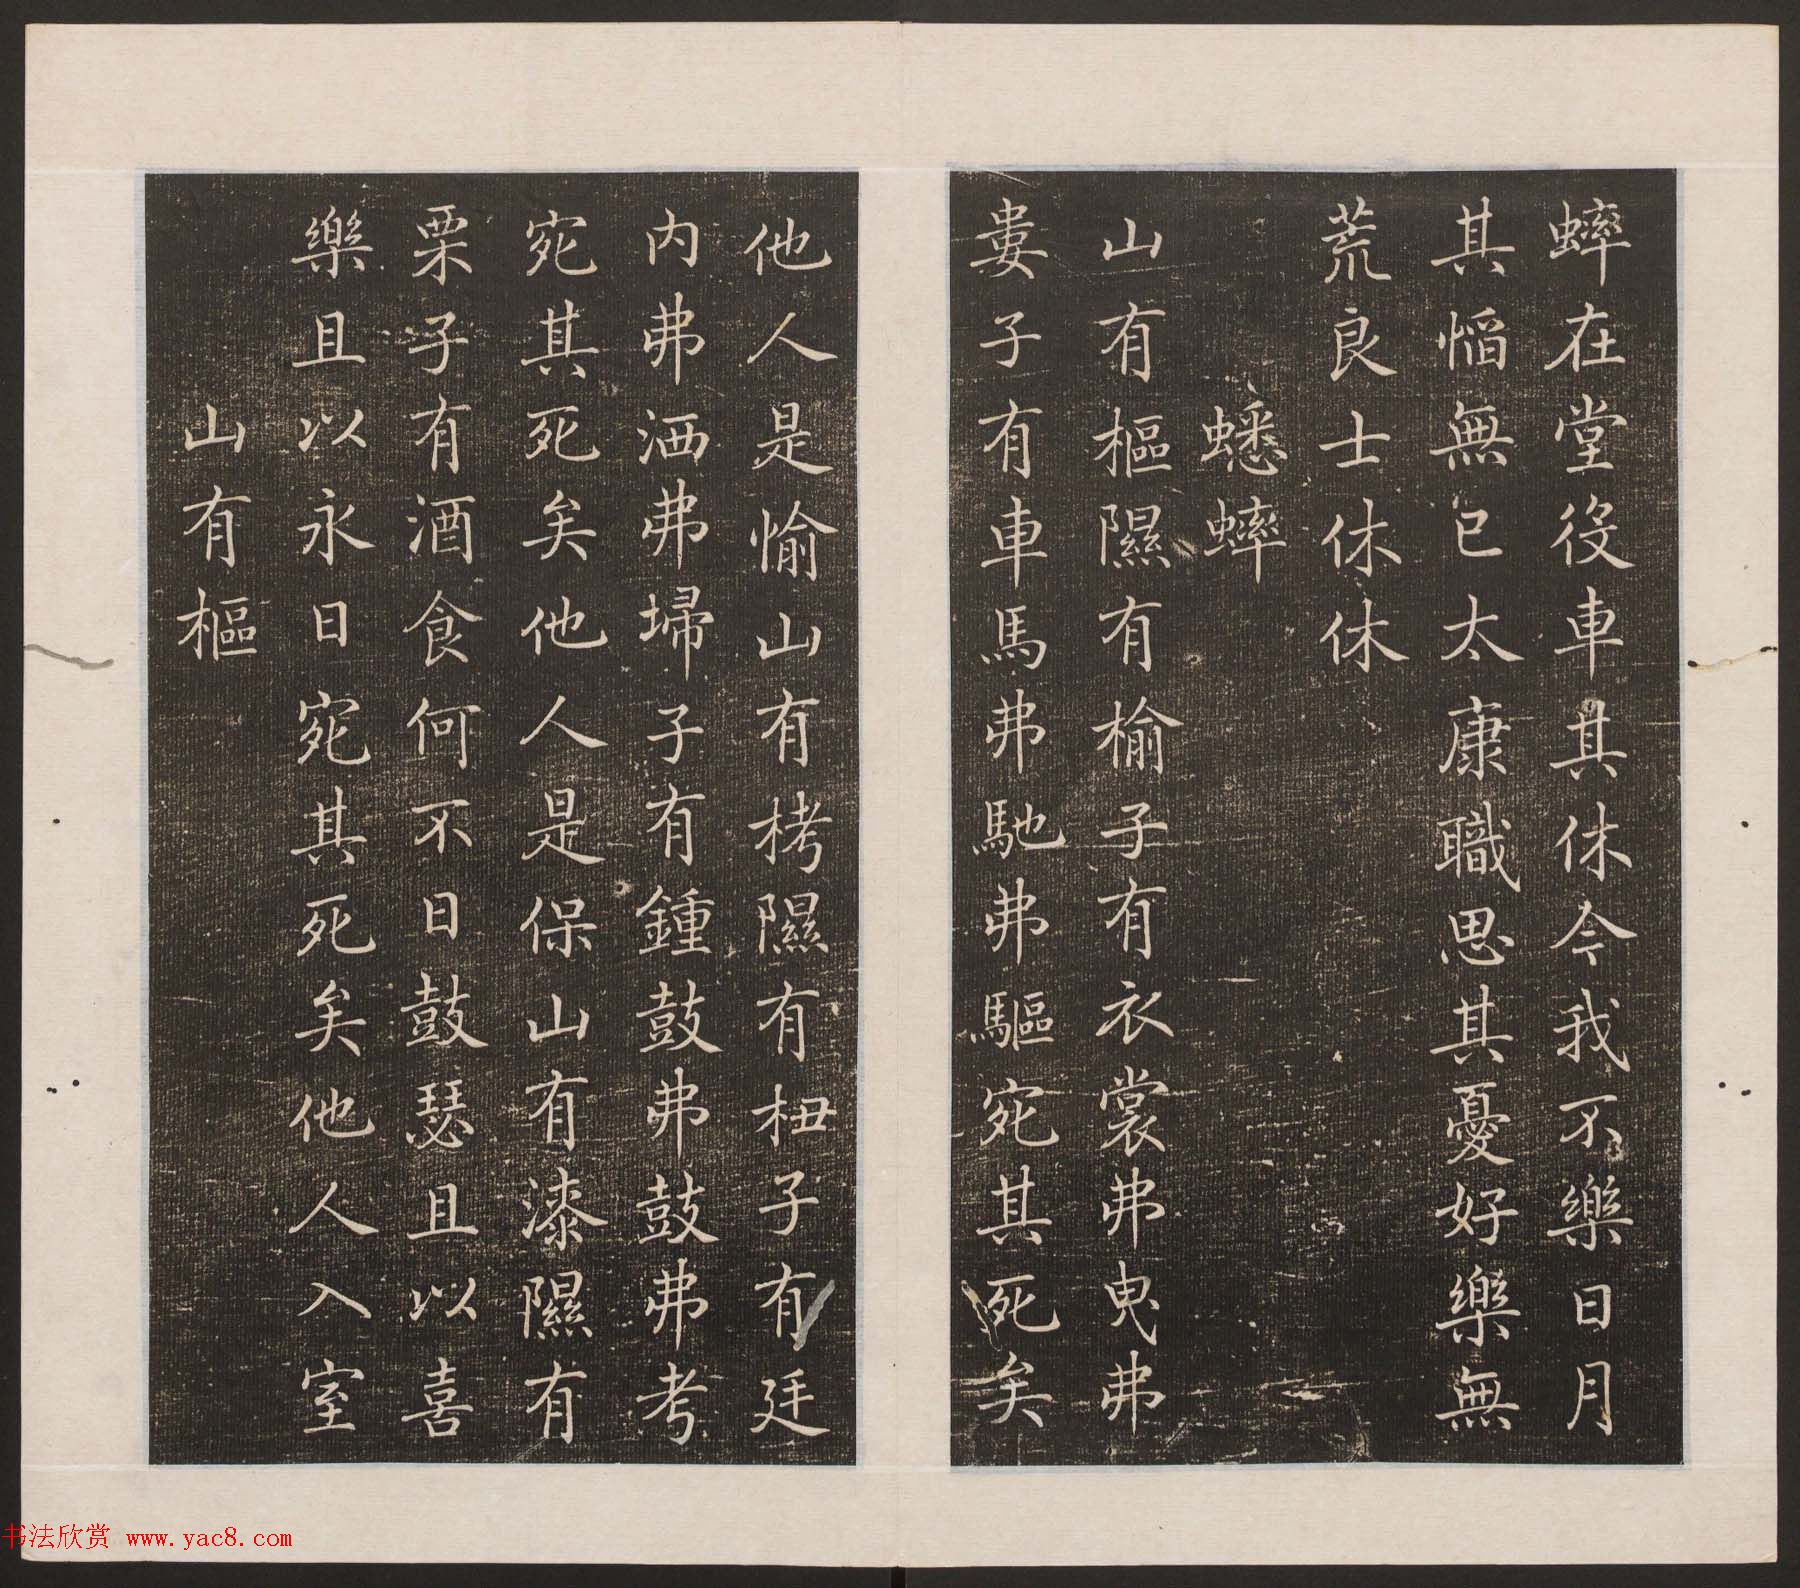 蟀在堂役車其休今我不樂日月
其慆無已太康職思其憂好樂無
荒良士休休
蟋蟀
山有樞隰有榆子有衣裳弗曳弗
婁子有車馬弗馳弗驅宛其死矣
他人是愉山有栲隰有杻子有廷
内弗洒弗埽子有鍾鼓弗鼓弗考
宛其死矣他人是保山有漆隰有
栗子有酒食何不日鼓瑟且以喜
樂且以永日宛其死矣他人入室
山有樞
书法欣赏 www.yac8.com